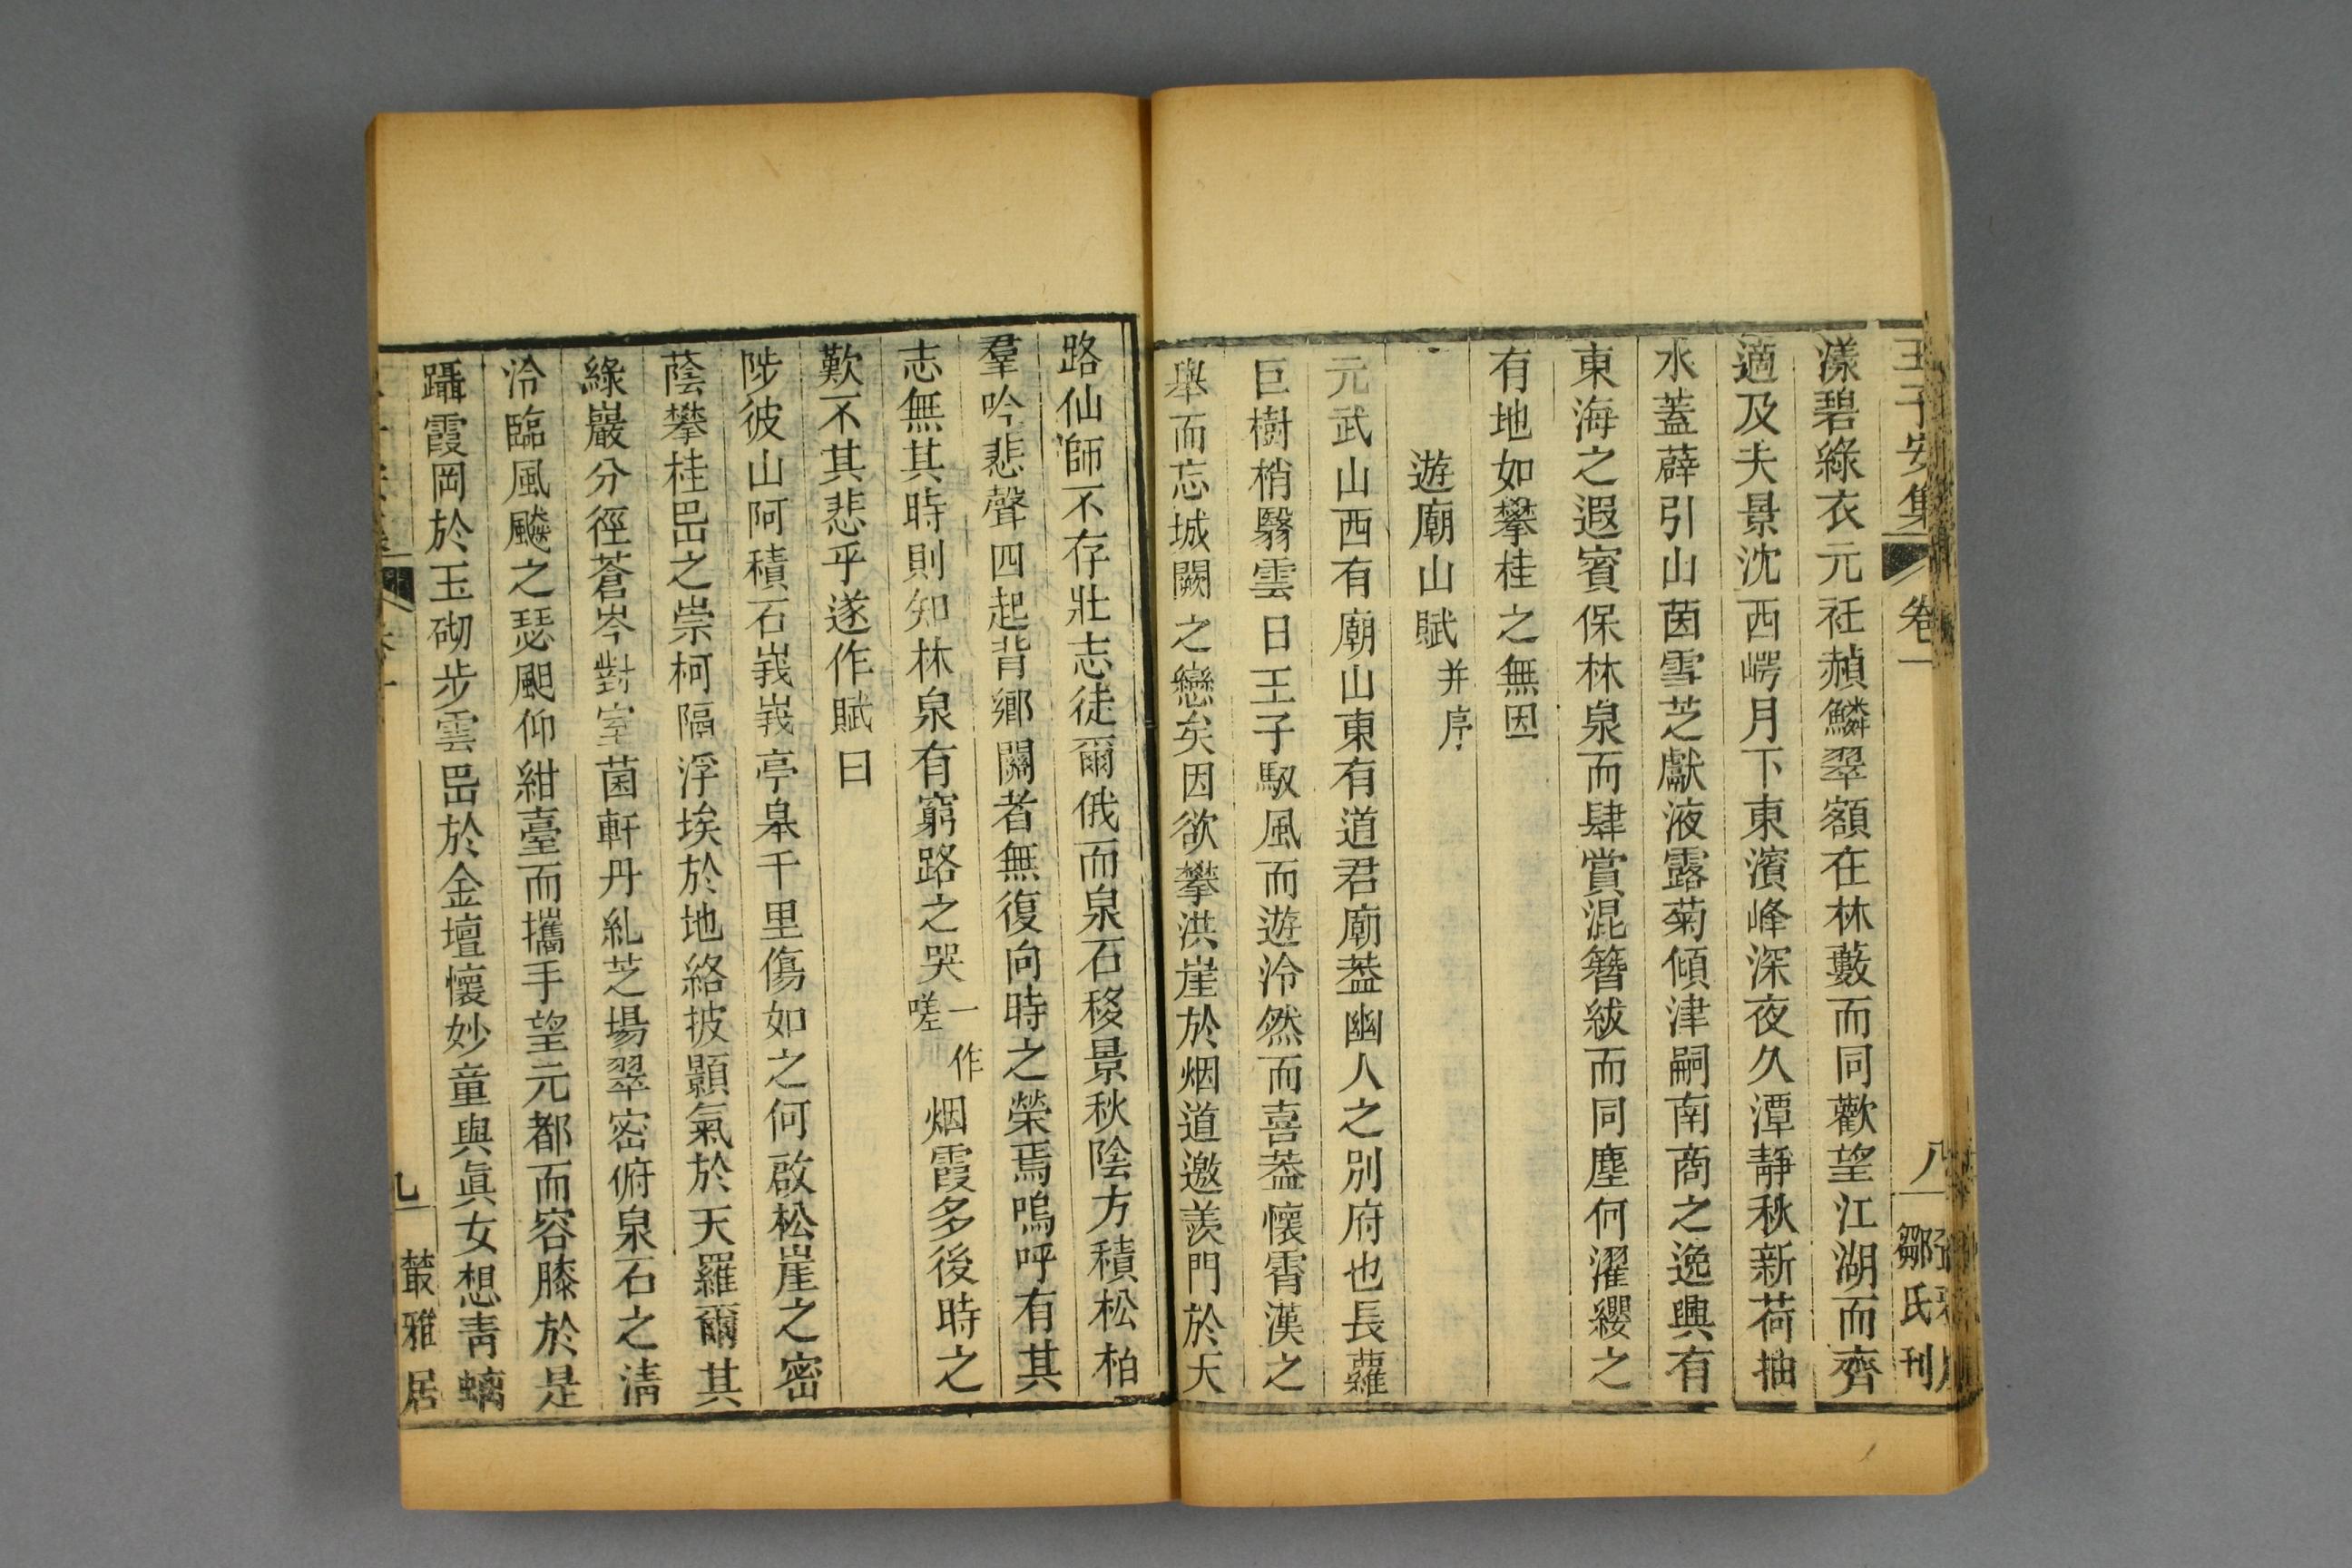 王子安集 卷一 八 鄒氏刊
漾碧綠衣元衽赬鱗翠額在林藪而同歡望江湖而齊
適及夫景沈西崿月下東濱峰深夜久潭靜秋新荷抽
水蓋薜引山茵雪芝獻液露菊傾津嗣南商之逸興有
東海之遐賓保林泉而肆賞混簪紱而同塵何濯纓之
有地如攀桂之無因
遊廟山賦并序
元武山西有廟山東有道君廟葢幽人之別府也長蘿
巨樹梢翳雲日王子馭風而遊泠然而喜葢懷霄漢之
舉而忘城闕之戀矣因欲攀洪崖於烟道邀羨門於天
路仙師不存壯志徒爾俄而泉石移景秋陰方積松柏
羣吟悲聲四起背鄉關者無復向時之榮焉嗚呼有其
志無其時則知林泉有窮路之哭一作嗟烟霞多後時之
歎不其悲乎遂作賦曰
陟彼山阿積石峩峩亭皋千里傷如之何啟松崖之密
蔭攀桂岊之崇柯隔浮埃於地絡披顥氣於天羅爾其
綠巖分徑蒼岑對室菌軒丹糺芝場翠密俯泉石之清
泠臨風飈之瑟颶仰紺臺而攜手望元都而容膝於是
躡霞岡於玉砌步雲岊於金壇懷妙童與眞女想靑螭
九 叢雅居